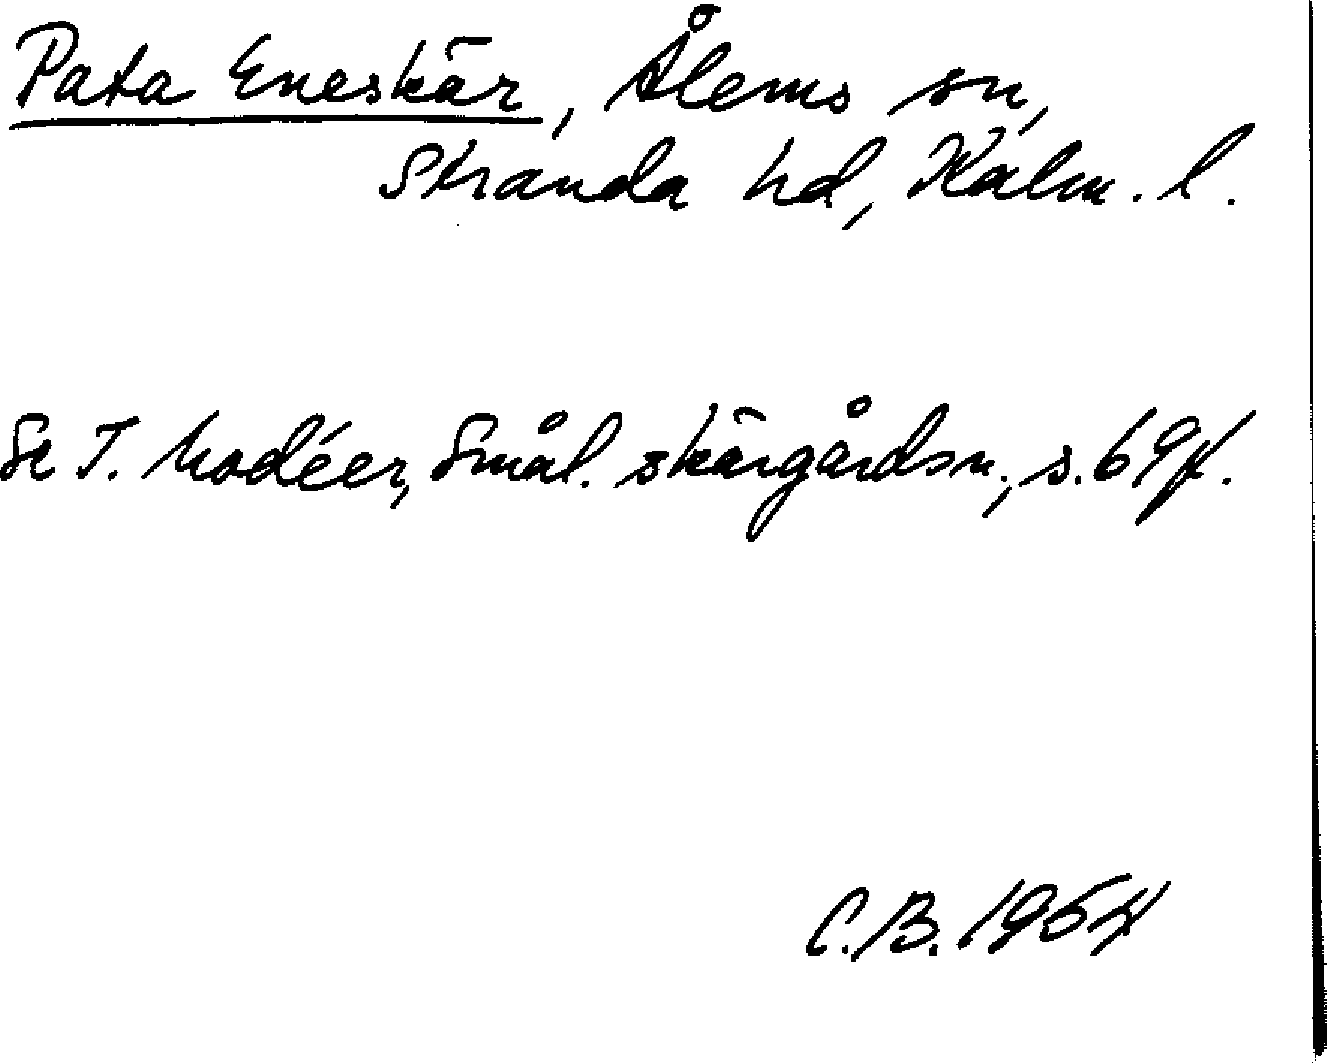 Pata Eneskär, Ålems sn,
Stranda hd, Kalm. l.
Se I. Modéer, Smål. skärgårdsn., s. 69f.
C.B. 1954